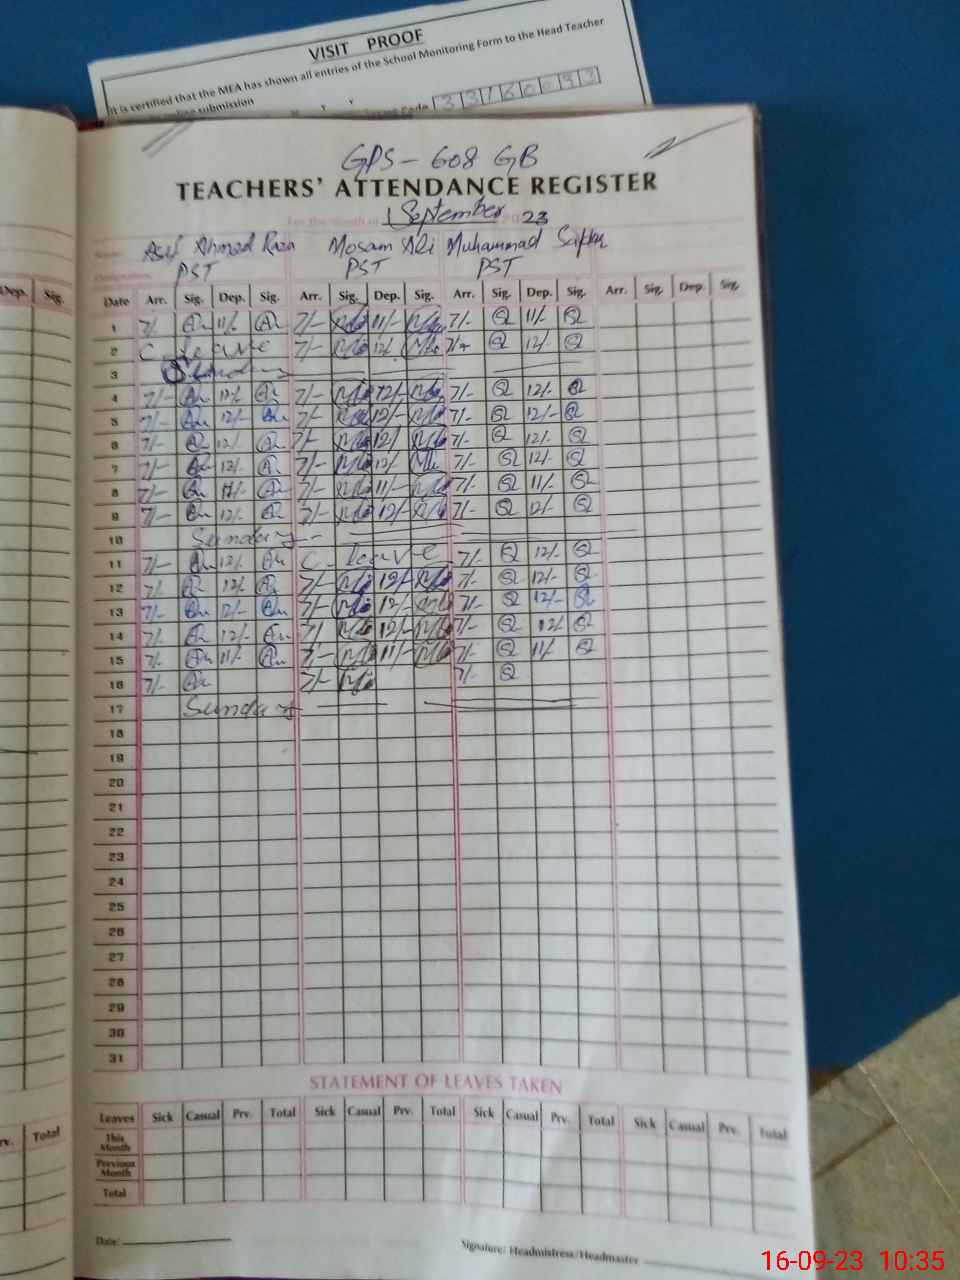 VISIT PROOF
It is certified that the MEA has shown all entries of the School Monitoring Form to the Head Teacher
submission
Code 33160093
GPS - 608 GB
TEACHERS' ATTENDANCE REGISTER
For the month of September 23
Name: Asif Ahmed Raza Mosam Ali Muhammad
Designation: PST PST PST
Dep. Sig. Date Arr. Sig. Dep. Sig. Arr. Sig. Dep. Sig. Arr. Sig. Dep. Sig. Arr. Sig. Dep. Sig.
1 7/- 11/- 7/- 11/- 7/- 11/-
2 C. leave 7/- 12/- 7/- 12/-
3 Sunday
4 7/- 12/- 7/- 12/- 7/- 12/-
5 7/- 12/- 7/- 12/- 7/- 12/-
6 7/- 12/- 7/- 12/- 7/- 12/-
7 7/- 12/- 7/- 12/- 7/- 12/-
8 7/- 11/- 7/- 11/- 7/- 11/-
9 7/- 12/- 7/- 12/- 7/- 12/-
10 Sunday
11 7/- 12/- C. leave 7/- 12/-
12 7/- 12/- 7/- 12/- 7/- 12/-
13 7/- 12/- 7/- 12/- 7/- 12/-
14 7/- 12/- 7/- 12/- 7/- 12/-
15 7/- 11/- 7/- 11/- 7/- 11/-
16 7/- 7/- 7/-
17 Sunday
18
19
20
21
22
23
24
25
26
27
28
29
30
31
STATEMENT OF LEAVES TAKEN
Leaves Sick Casual Prv. Total Sick Casual Prv. Total Sick Casual Prv. Total Sick Casual Prv. Total
This Month
Previous Month
Total
rv. Total
Date:
Signature: Headmistress/Headmaster
16-09-23 10:35